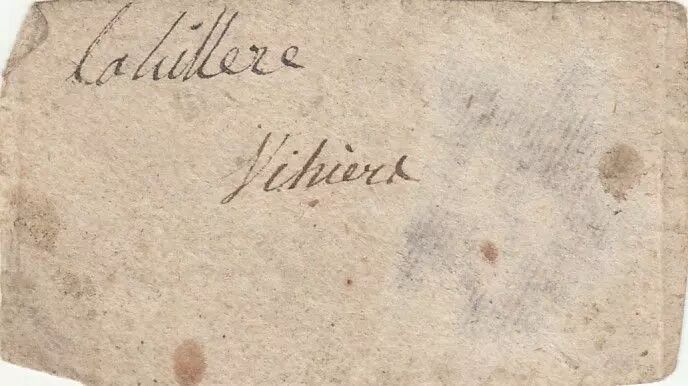 Lahillere
Vihiers